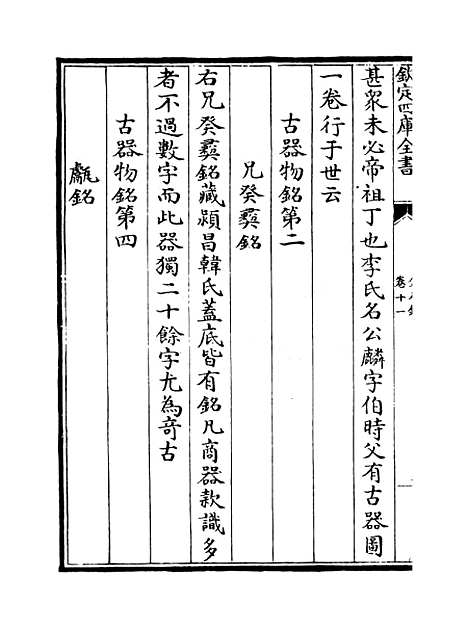 欽定四庫全書
卷十一
甚衆未必帝祖丁也李氏名公麟字伯時父有古器圖
一卷行于世云
古器物銘第二
兄癸彞銘
右兄癸彞銘藏潁昌韓氏蓋底皆有銘凡商器款識多
者不過數字而此器獨二十餘字尤為竒古
古器物銘第四
甗銘